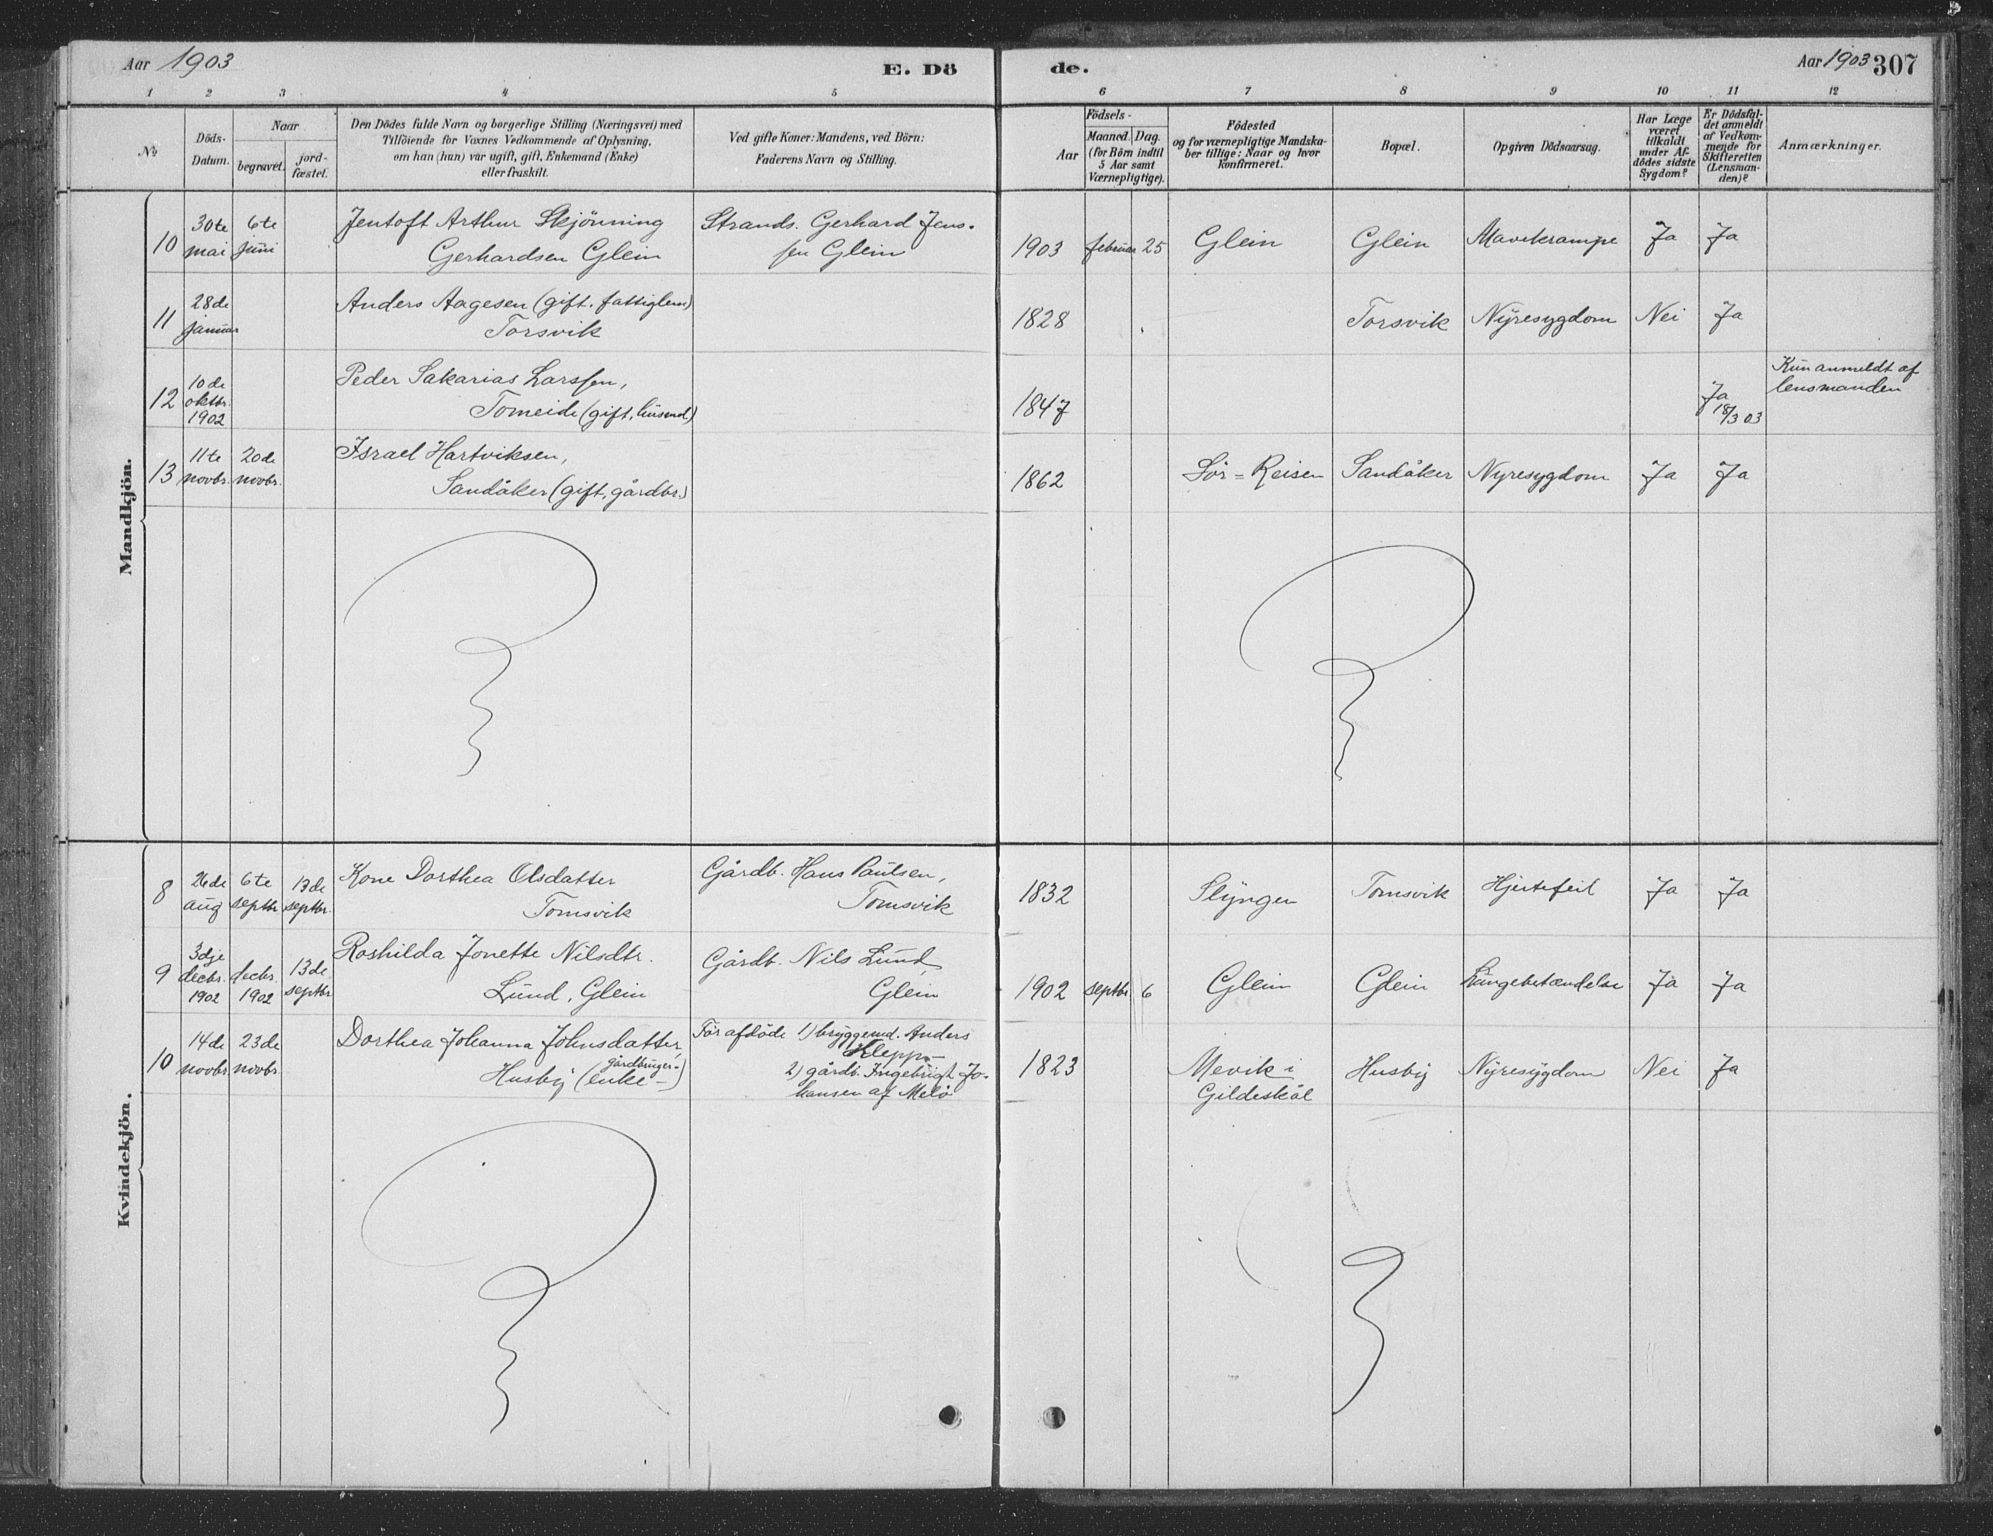 Aar 1903
E. Dö
de.
Aar 1903 307
1 2 3 4 5 6 7 8 9 10 11 12
№
Döds-
Datum.
Naar
begravet.
jord-
fæstet.
Den Dödes fulde Navn og borgerlige Stilling (Næringsvei) med
Tilföiende for Voxnes Vedkommende af Oplysning,
om han (hun) var ugift, gift, Enkemand (Enke)
eller fraskilt.
Ved gifte Koner: Mandens, ved Börn:
Faderens Navn og Stilling.
Födsels-
Aar
Maaned. Dag.
(for Börn indtil
5 Aar samt
Værnepligtige).
Födested
og for værnepligtige Mandska-
ber tillige: Naar og hvor
konfirmeret.
Bopæl.
Opgiven Dödsaarsag.
Har Læge
været
tilkaldt
under Af-
dödes sidste
Sygdom?
Er Dödsfal-
det anmeldt
af Vedkom-
mende for
Skifteretten
(Lensman-
den)?
Anmærkninger.
Mandkjön.
10
30te
mai
6te
juni
Jentoft Arthur Skjönning
Gerhardsen Glein
Strands. Gerhard Jens-
sen Glein
1903 februar 25 Glein Glein Mavekrampe Ja Ja
11
28de
januar
Anders Aagesen (gift, fattiglem)
Torsvik
1828 Torsvik Nyresygdom Nei Ja
12
10de
oktbr.
1902
Peder Sakarias Larssen,
Tomeide (gift, husmd)
1847
Ja
18/3 03
Kun anmeldt af
lensmanden
13
11te
novbr.
20de
novbr.
Israel Hartviksen,
Sandåker (gift, gårdbr.)
1862 Sör-Reisen Sandåker Nyresygdom Ja Ja
Kvindekjön.
8
26de
aug
6te
septbr
13de
septbr.
Kone Dorthea Olsdatter
Tomsvik
Gårdb. Hans Paulsen,
Tomsvik
1832 Slyngen Tomsvik Hjertefeil Ja Ja
9
3dje
decbr.
1902
decbr.
1902
13de
septbr
Roshilda Jonette Nilsdtr.
Lund, Glein
Gårdb. Nils Lund
Glein
1902 septbr 6 Glein Glein Lungebetændelse Ja Ja
10
14de
novbr.
23de
novbr.
Dorthea Johanna Johnsdatter,
Husby (gårdbruger-
enke-)
For afdöde 1) bryggemd. Anders
Klepp-
2) gårdb. Ingebrigt Jo-
hansen af Melö
1823
Mevik i
Gildeskål
Husby Nyresygdom Nei Ja